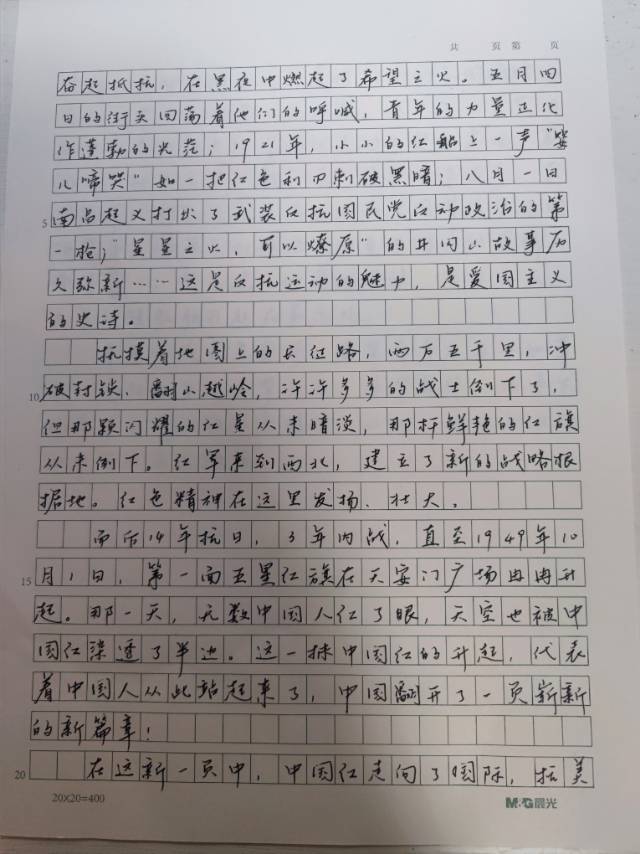 共 页 第 页
奋起抵抗，在黑夜中燃起了希望之火。五月四
日的街头回荡着他们的呼喊，青年的力量正化
作蓬勃的光茫；1921年，小小的红船上一声“婴
儿啼哭”如一把红色利刃刺破黑暗；八月一日
5 南昌起义打出了武装反抗国民党反动政治的第
一枪；“星星之火，可以燎原”的井冈山故事历
久弥新……这是反抗运动的魅力，是爱国主义
的史诗。
抚摸着地图上的长征路，两万五千里，冲
10 破封锁、翻山越岭，许许多多的战士倒下了，
但那颗闪耀的红星从未暗淡，那杆鲜艳的红旗
从未倒下。红军来到西北，建立了新的战略根
据地。红色精神在这里发扬、壮大。
而后14年抗日，3年内战，直至1949年10
15 月1日，第一面五星红旗在天安门广场冉冉升
起。那一天，无数中国人红了眼，天空也被中
国红染透了半边。这一抹中国红的升起，代表
着中国人从此站起来了，中国翻开了一页崭新
的新篇章！
20 在这新一页中，中国红走向了国际，抗美
20×20=400 M&G晨光